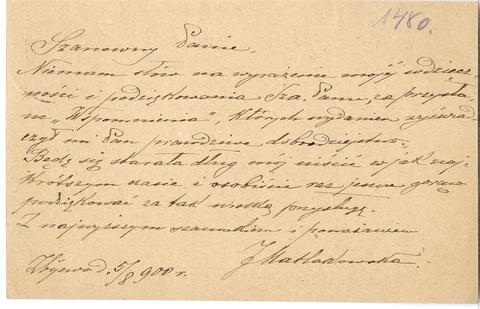 1480.
Szanowny Panie,
Niemam słów na wyrażenie mojéj wdzięcz-
ności i podziękowania Sza. Panu, za przysła-
ne „Wspomnienia", których wydaniem wyświad-
czył mi Pan prawdziwe dobrodziejstwo.
Będę się starała dług mój uiścić w jak naj-
krótszym czasie i osobiście raz jeszcze gorąco
podziękować za tak wielką przysługę.
Z najwyższym szacunkiem i poważaniem
J Matlakowska.
d. 5/8 900 r.